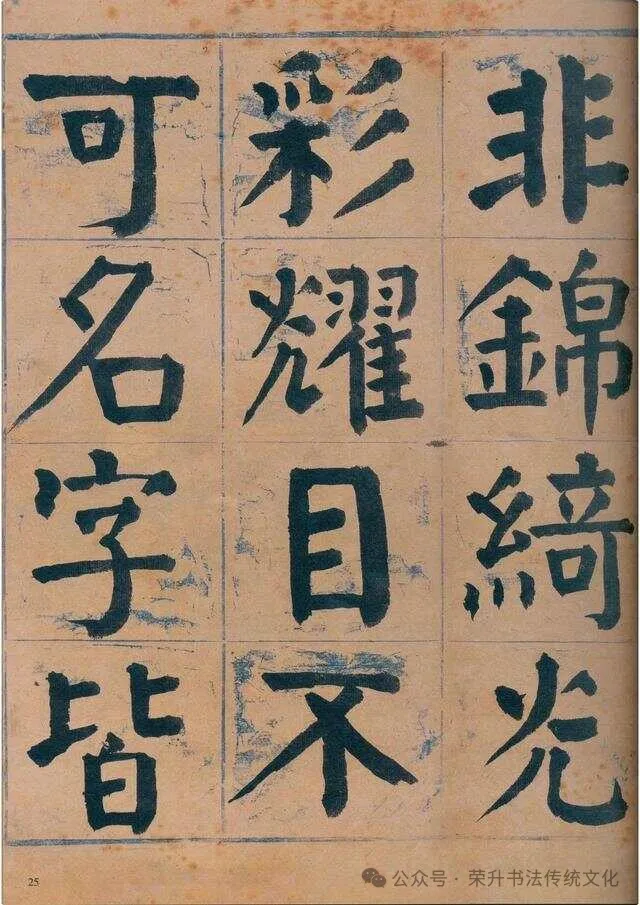 非錦綺光
彩耀目不
可名字皆
25
公众号·荣升书法传统文化